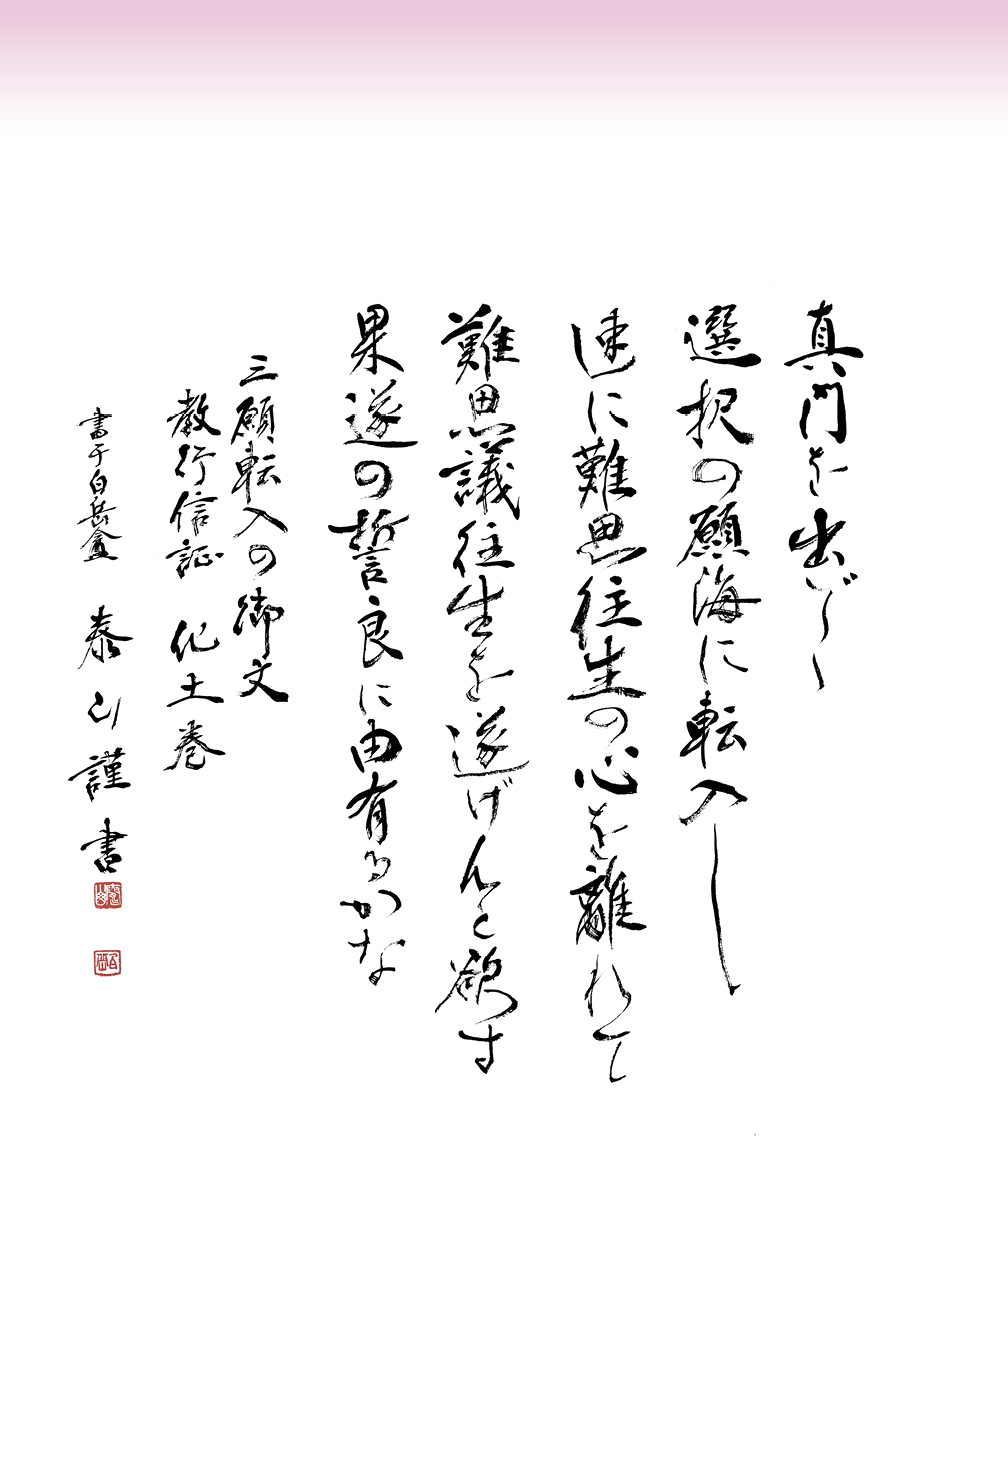 真門を出でゝ
選択の願海に転入し
速に難思往生の心を離れて
難思議往生を遂げんと欲す
果遂の誓良に由有るかな
三願転入の御文
教行信証 化土巻
書于白岳盦 泰山謹書